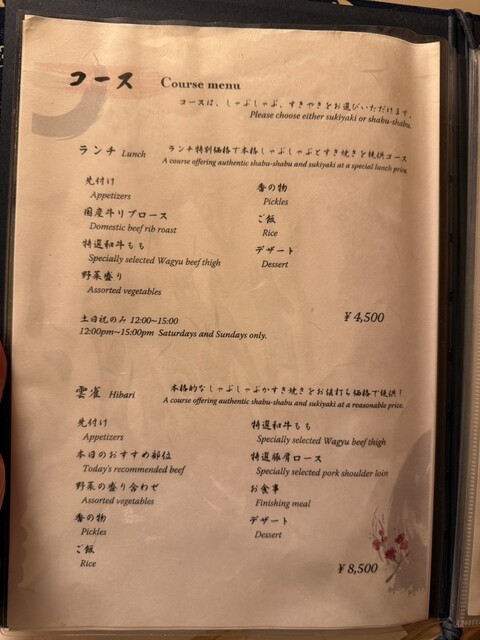 コース Course menu
コースは、しゃぶしゃぶ、すきやきをお選びいただけます。
Please choose either sukiyaki or shabu-shabu.
ランチ Lunch ランチ特別価格で本格しゃぶしゃぶとすき焼きを提供コース
A course offering authentic shabu-shabu and sukiyaki at a special lunch price.
先付け
Appetizers
国産牛リブロース
Domestic beef rib roast
特選和牛もも
Specially selected Wagyu beef thigh
野菜盛り
Assorted vegetables
香の物
Pickles
ご飯
Rice
デザート
Dessert
土日祝のみ 12:00~15:00
12:00pm~15:00pm Saturdays and Sundays only.
¥4,500
雲雀 Hibari 本格的なしゃぶしゃぶかすき焼きをお値打ち価格で提供！
A course offering authentic shabu-shabu and sukiyaki at a reasonable price.
先付け
Appetizers
本日のおすすめ部位
Today's recommended beef
野菜の盛り合わせ
Assorted vegetables
香の物
Pickles
ご飯
Rice
特選和牛もも
Specially selected Wagyu beef thigh
特選豚肩ロース
Specially selected pork shoulder loin
お食事
Finishing meal
デザート
Dessert
¥8,500